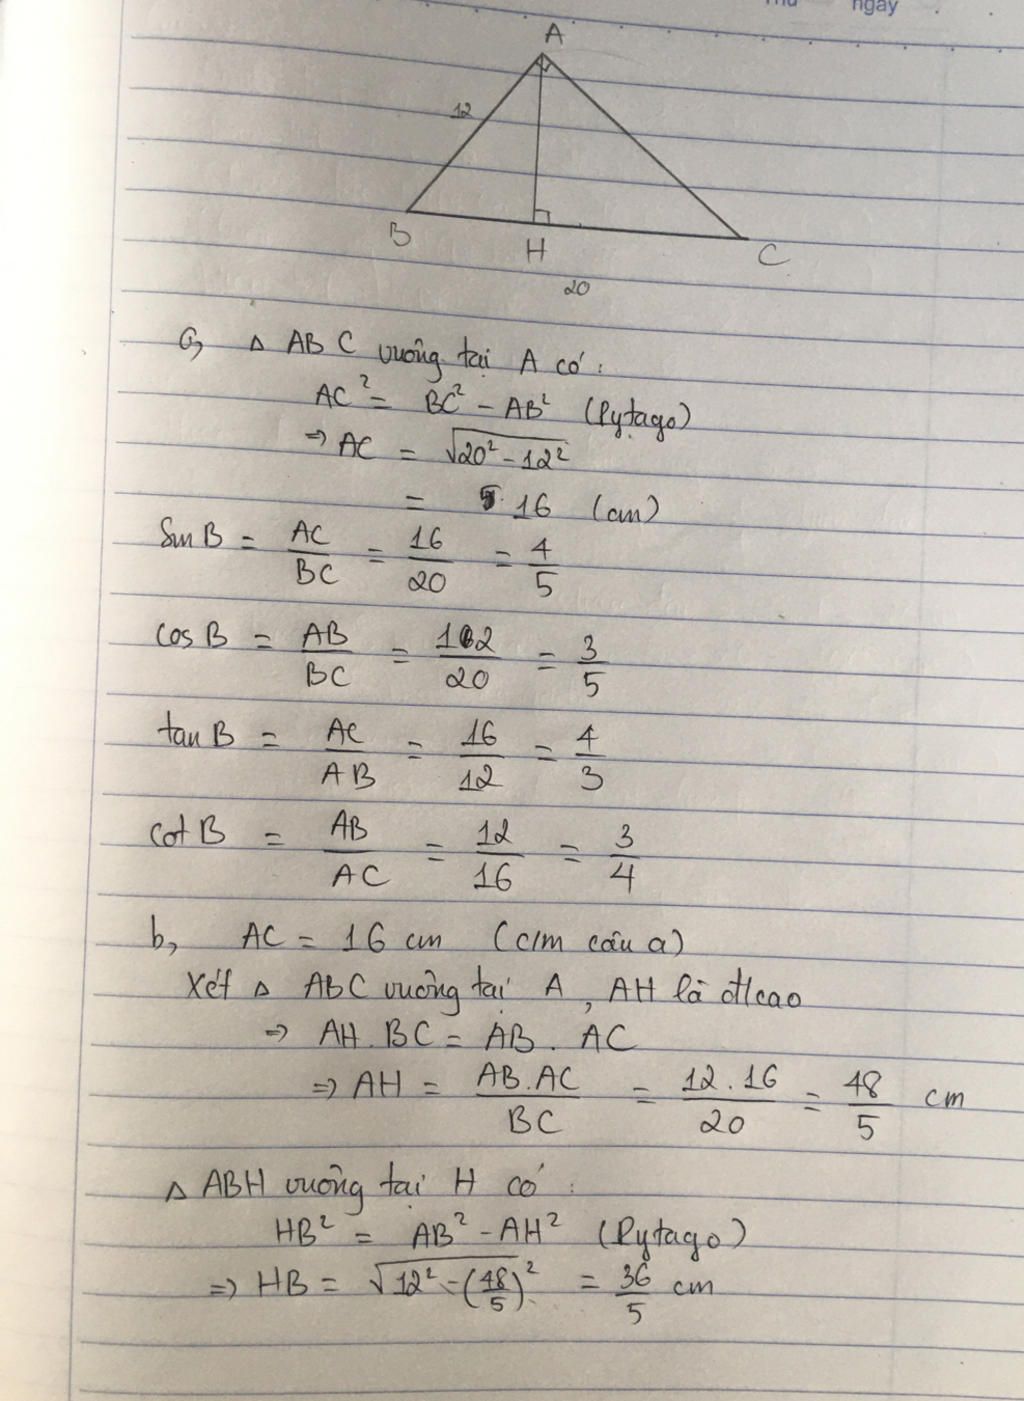 Thứ
ngày
A
12
B
H
C
20
a, Δ ABC vuông tại A có:
AC² = BC² - AB² (Pytago)
⇒ AC = √20² - 12²
= 16 (cm)
Sin B = AC/BC = 16/20 = 4/5
cos B = AB/BC = 12/20 = 3/5
tan B = AC/AB = 16/12 = 4/3
cot B = AB/AC = 12/16 = 3/4
b, AC = 16 cm (c/m câu a)
Xét Δ ABC vuông tại A, AH là đ/cao
⇒ AH.BC = AB.AC
⇒ AH = AB.AC/BC = 12.16/20 = 48/5 cm
Δ ABH vuông tại H có:
HB² = AB² - AH² (Pytago)
⇒ HB = √12² - (48/5)² = 36/5 cm